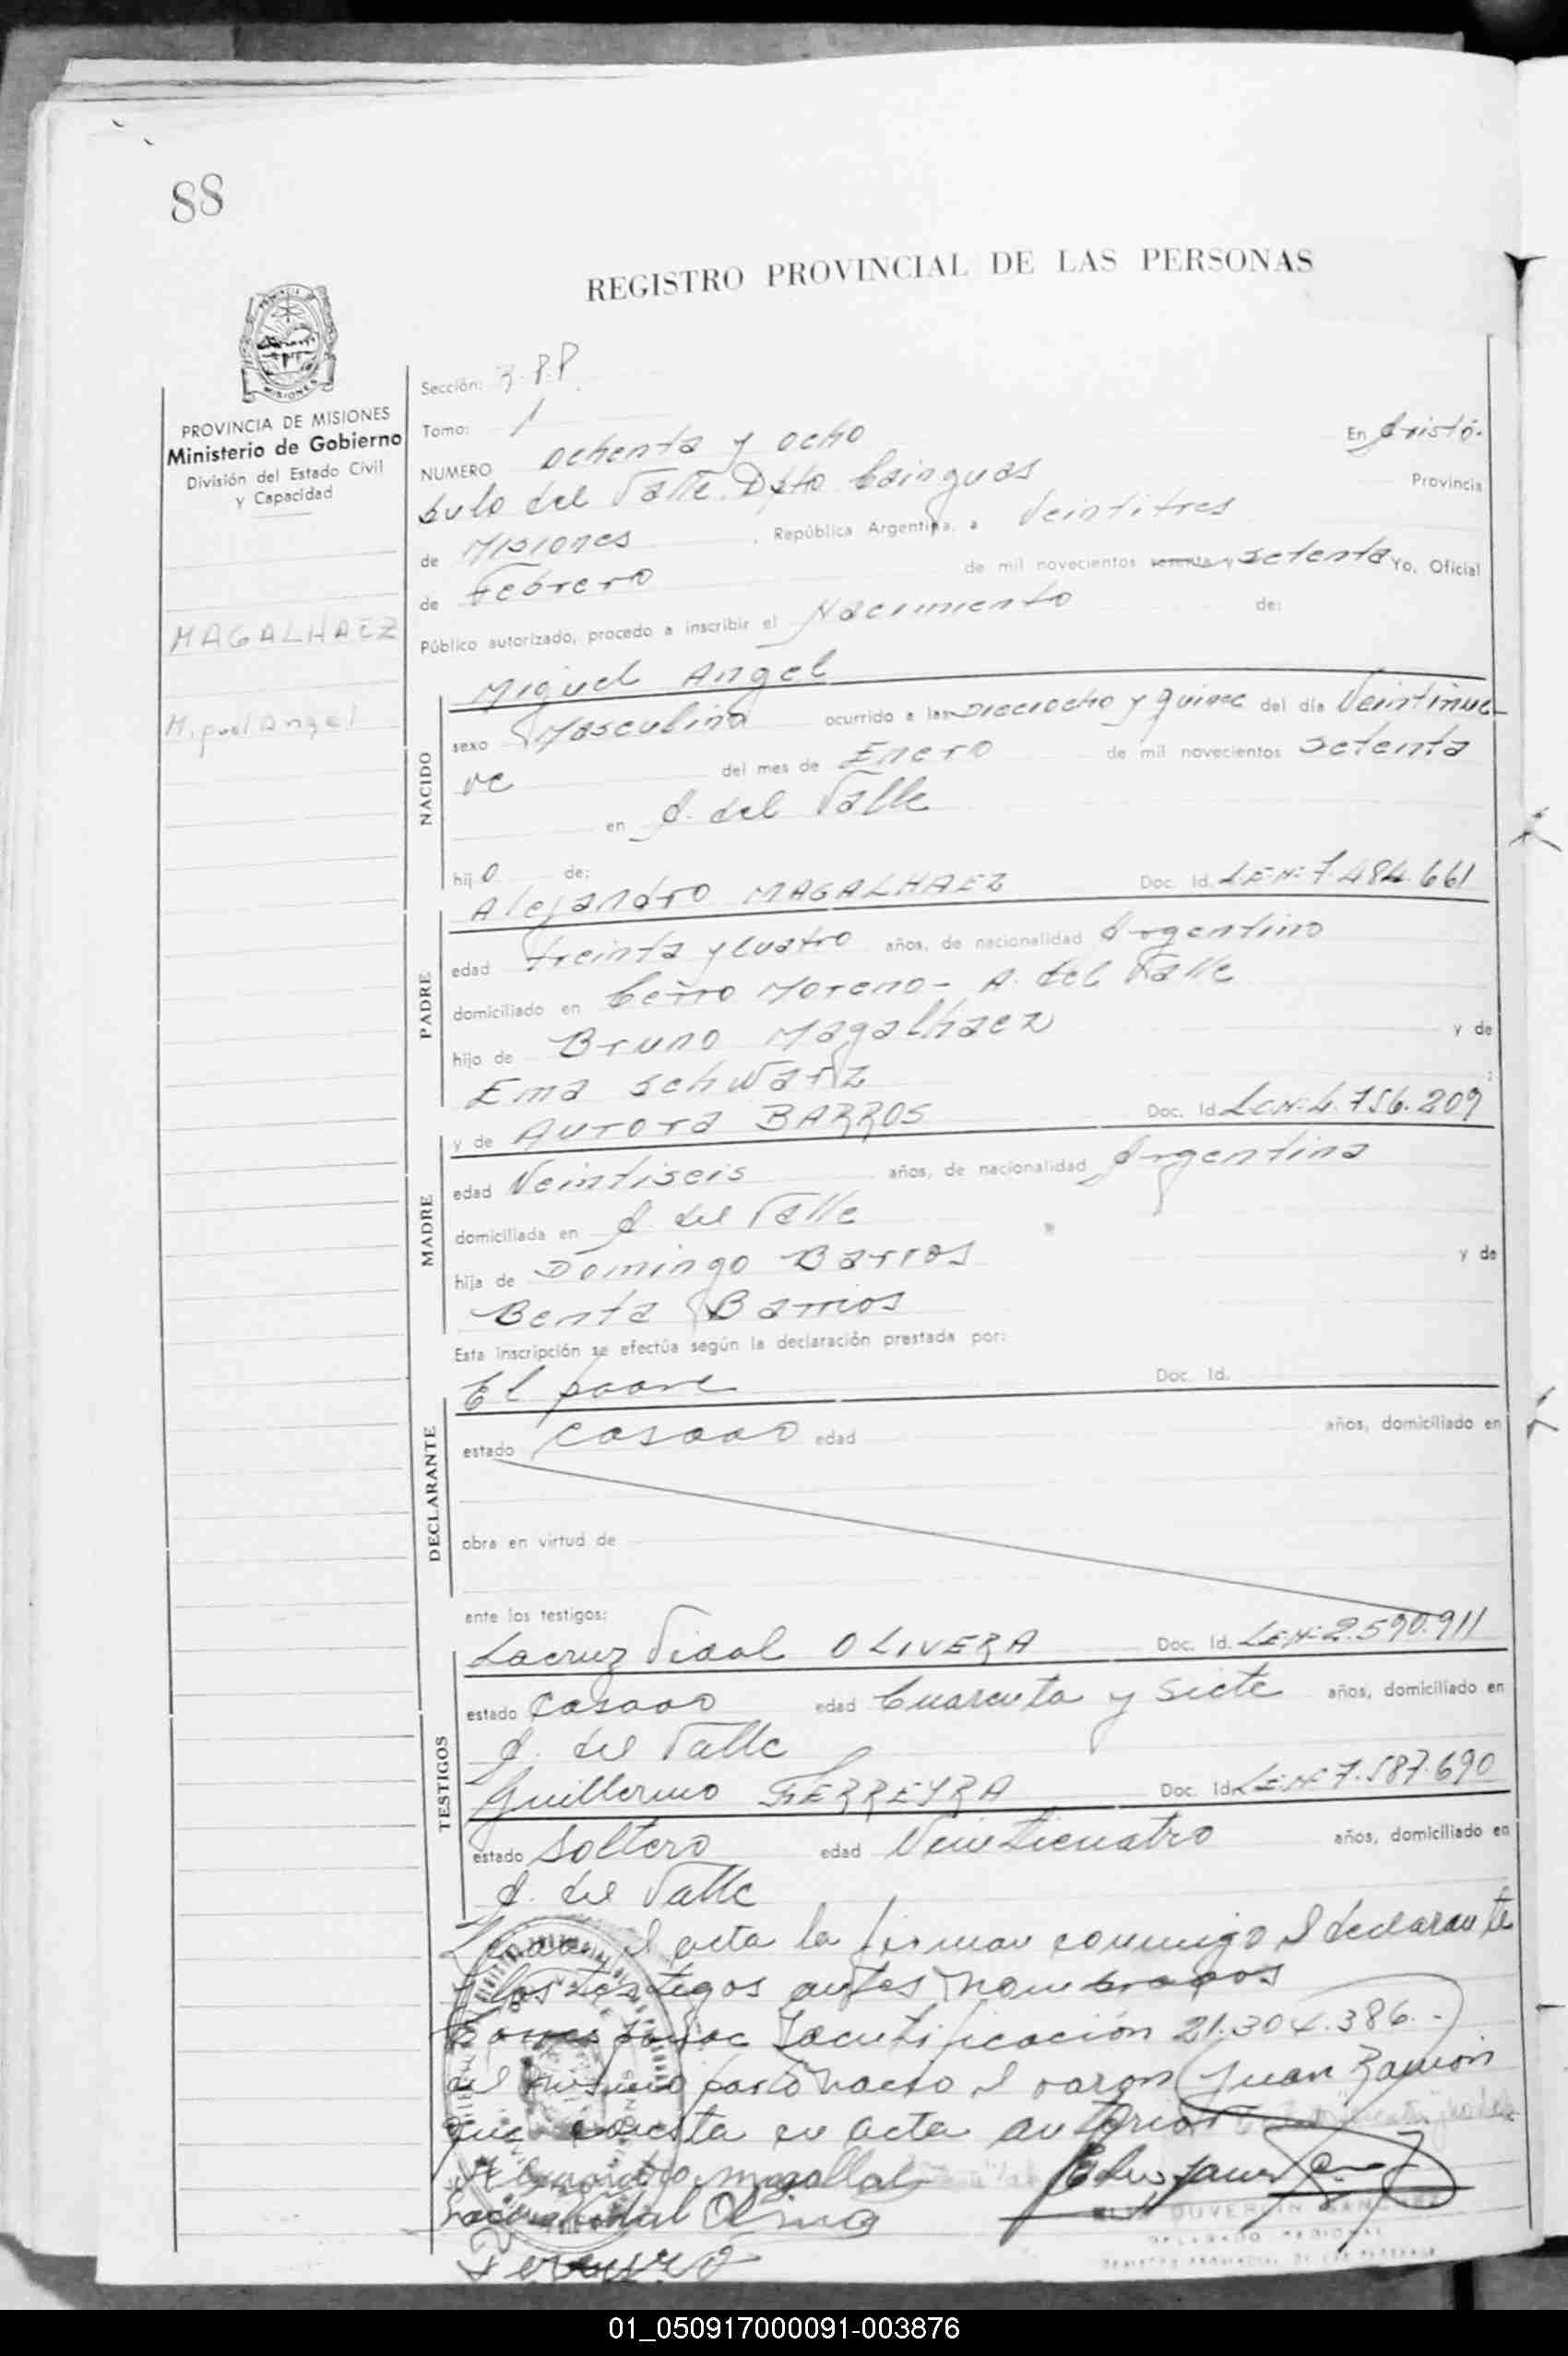 88
REGISTRO PROVINCIAL DE LAS PERSONAS
PROVINCIA DE MISIONES
Ministerio de Gobierno
División del Estado Civil
y Capacidad
MAGALHAEZ
Miguel Angel
Sección: 3-P.P.
Tomo: 1
NUMERO ochenta y ocho En Aristó-
bulo del Valle Dpto Cainguas Provincia
de Misiones, República Argentina, a Veintitres
de Febrero de mil novecientos sesenta y setenta Yo, Oficial
Público autorizado, procedo a inscribir el Nacimiento de:
NACIDO
Miguel Angel
sexo Masculino ocurrido a las Dieciocho y quince del día Veintinue-
ve del mes de Enero de mil novecientos setenta
en A. del Valle
hijo de:
PADRE
Alejandro MAGALHAEZ Doc. Id. LEN: 7.484.661
edad treinta y cuatro años, de nacionalidad Argentino
domiciliado en Cerro Moreno- A. del Valle
hijo de Bruno Magalhaez y de
Ema Schwartz
MADRE
y de Aurora BARROS Doc. Id. LCN: 4.756.209
edad Veintiseis años, de nacionalidad Argentina
domiciliada en A. del Valle
hija de Domingo Barros y de
Benta Barrios
Esta inscripción se efectúa según la declaración prestada por:
DECLARANTE
El padre Doc. Id.
estado casado edad años, domiciliado en
obra en virtud de
ante los testigos:
TESTIGOS
Lacruz Vidal OLIVERA Doc. Id. LEN: 2.590.911
estado Casado edad Cuarenta y siete años, domiciliado en
A. del Valle
Guillermo FERREYRA Doc. Id. LEN: 7.587.690
estado Soltero edad Veinticuatro años, domiciliado en
A. del Valle
Leida el acta la firman conmigo el declarante
y los testigos antes nombrados
Corresponde Identificación 21.304.386.-
del mismo parto nacio el varon Juan Ramón
que consta en acta anterior
Lacruz Vidal Olivera
Ferreyra
DELEGADO REGIONAL
REGISTRO PROVINCIAL DE LAS PERSONAS
01_050917000091-003876